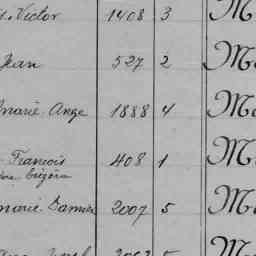 Victor 1408 3 M
Jean 527 2 M
Marie Ange 1888 4 M
François 408 1 M
Grégoire
Marie 2007 5 M
2003 5 M